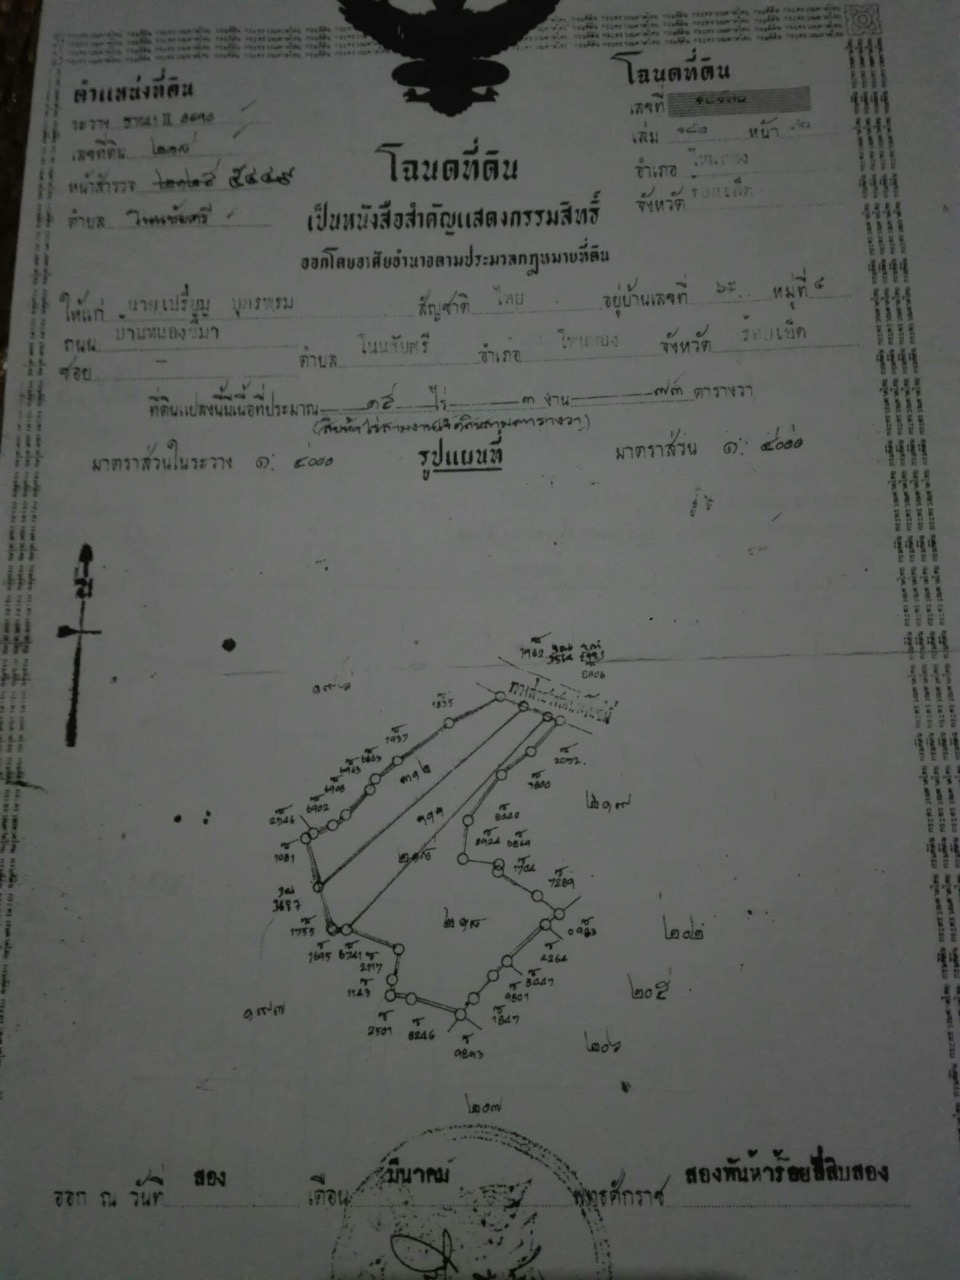 ตำแหน่งที่ดิน
ระวาง
เลขที่ดิน ๒๑๙
หน้าสำรวจ ๕๔๔๙
ตำบล โนนชัยศรี
โฉนดที่ดิน
เลขที่
เล่ม ๑๘๘ หน้า
อำเภอ โพนทอง
จังหวัด ร้อยเอ็ด
โฉนดที่ดิน
เป็นหนังสือสำคัญแสดงกรรมสิทธิ์
ออกโดยอาศัยอำนาจตามประมวลกฎหมายที่ดิน
ให้แก่ นายเปรี่ยม บุตรพรม สัญชาติ ไทย อยู่บ้านเลขที่ ๖๙ หมู่ที่ ๔
ถนน บ้านหนองขี้มา
ซอย - ตำบล โนนชัยศรี อำเภอ โพนทอง จังหวัด ร้อยเอ็ด
ที่ดินแปลงนี้มีเนื้อที่ประมาณ ๑๕ ไร่ ๓ งาน ๗๓ ตารางวา
(สิบห้าไร่สามงานเจ็ดสิบสามตารางวา)
มาตราส่วนในระวาง ๑: ๔๐๐๐ รูปแผนที่ มาตราส่วน ๑: ๔๐๐๐
น
๑๙๖
1962
1835
1937
2032
๒๑๗
๓๑๒
6902
2546
1081
๓๑๑
8040
8924
1704
7289
๒๑๙
๒๑๘
0983
๒๐๒
1755
1695
6741
2117
4264
8447
๒๐๕
1143
9801
1847
๑๙๗
2501
8246
9893
๒๐๖
๒๐๗
ออก ณ วันที่ สอง เดือน มีนาคม พุทธศักราช สองพันห้าร้อยสี่สิบสอง